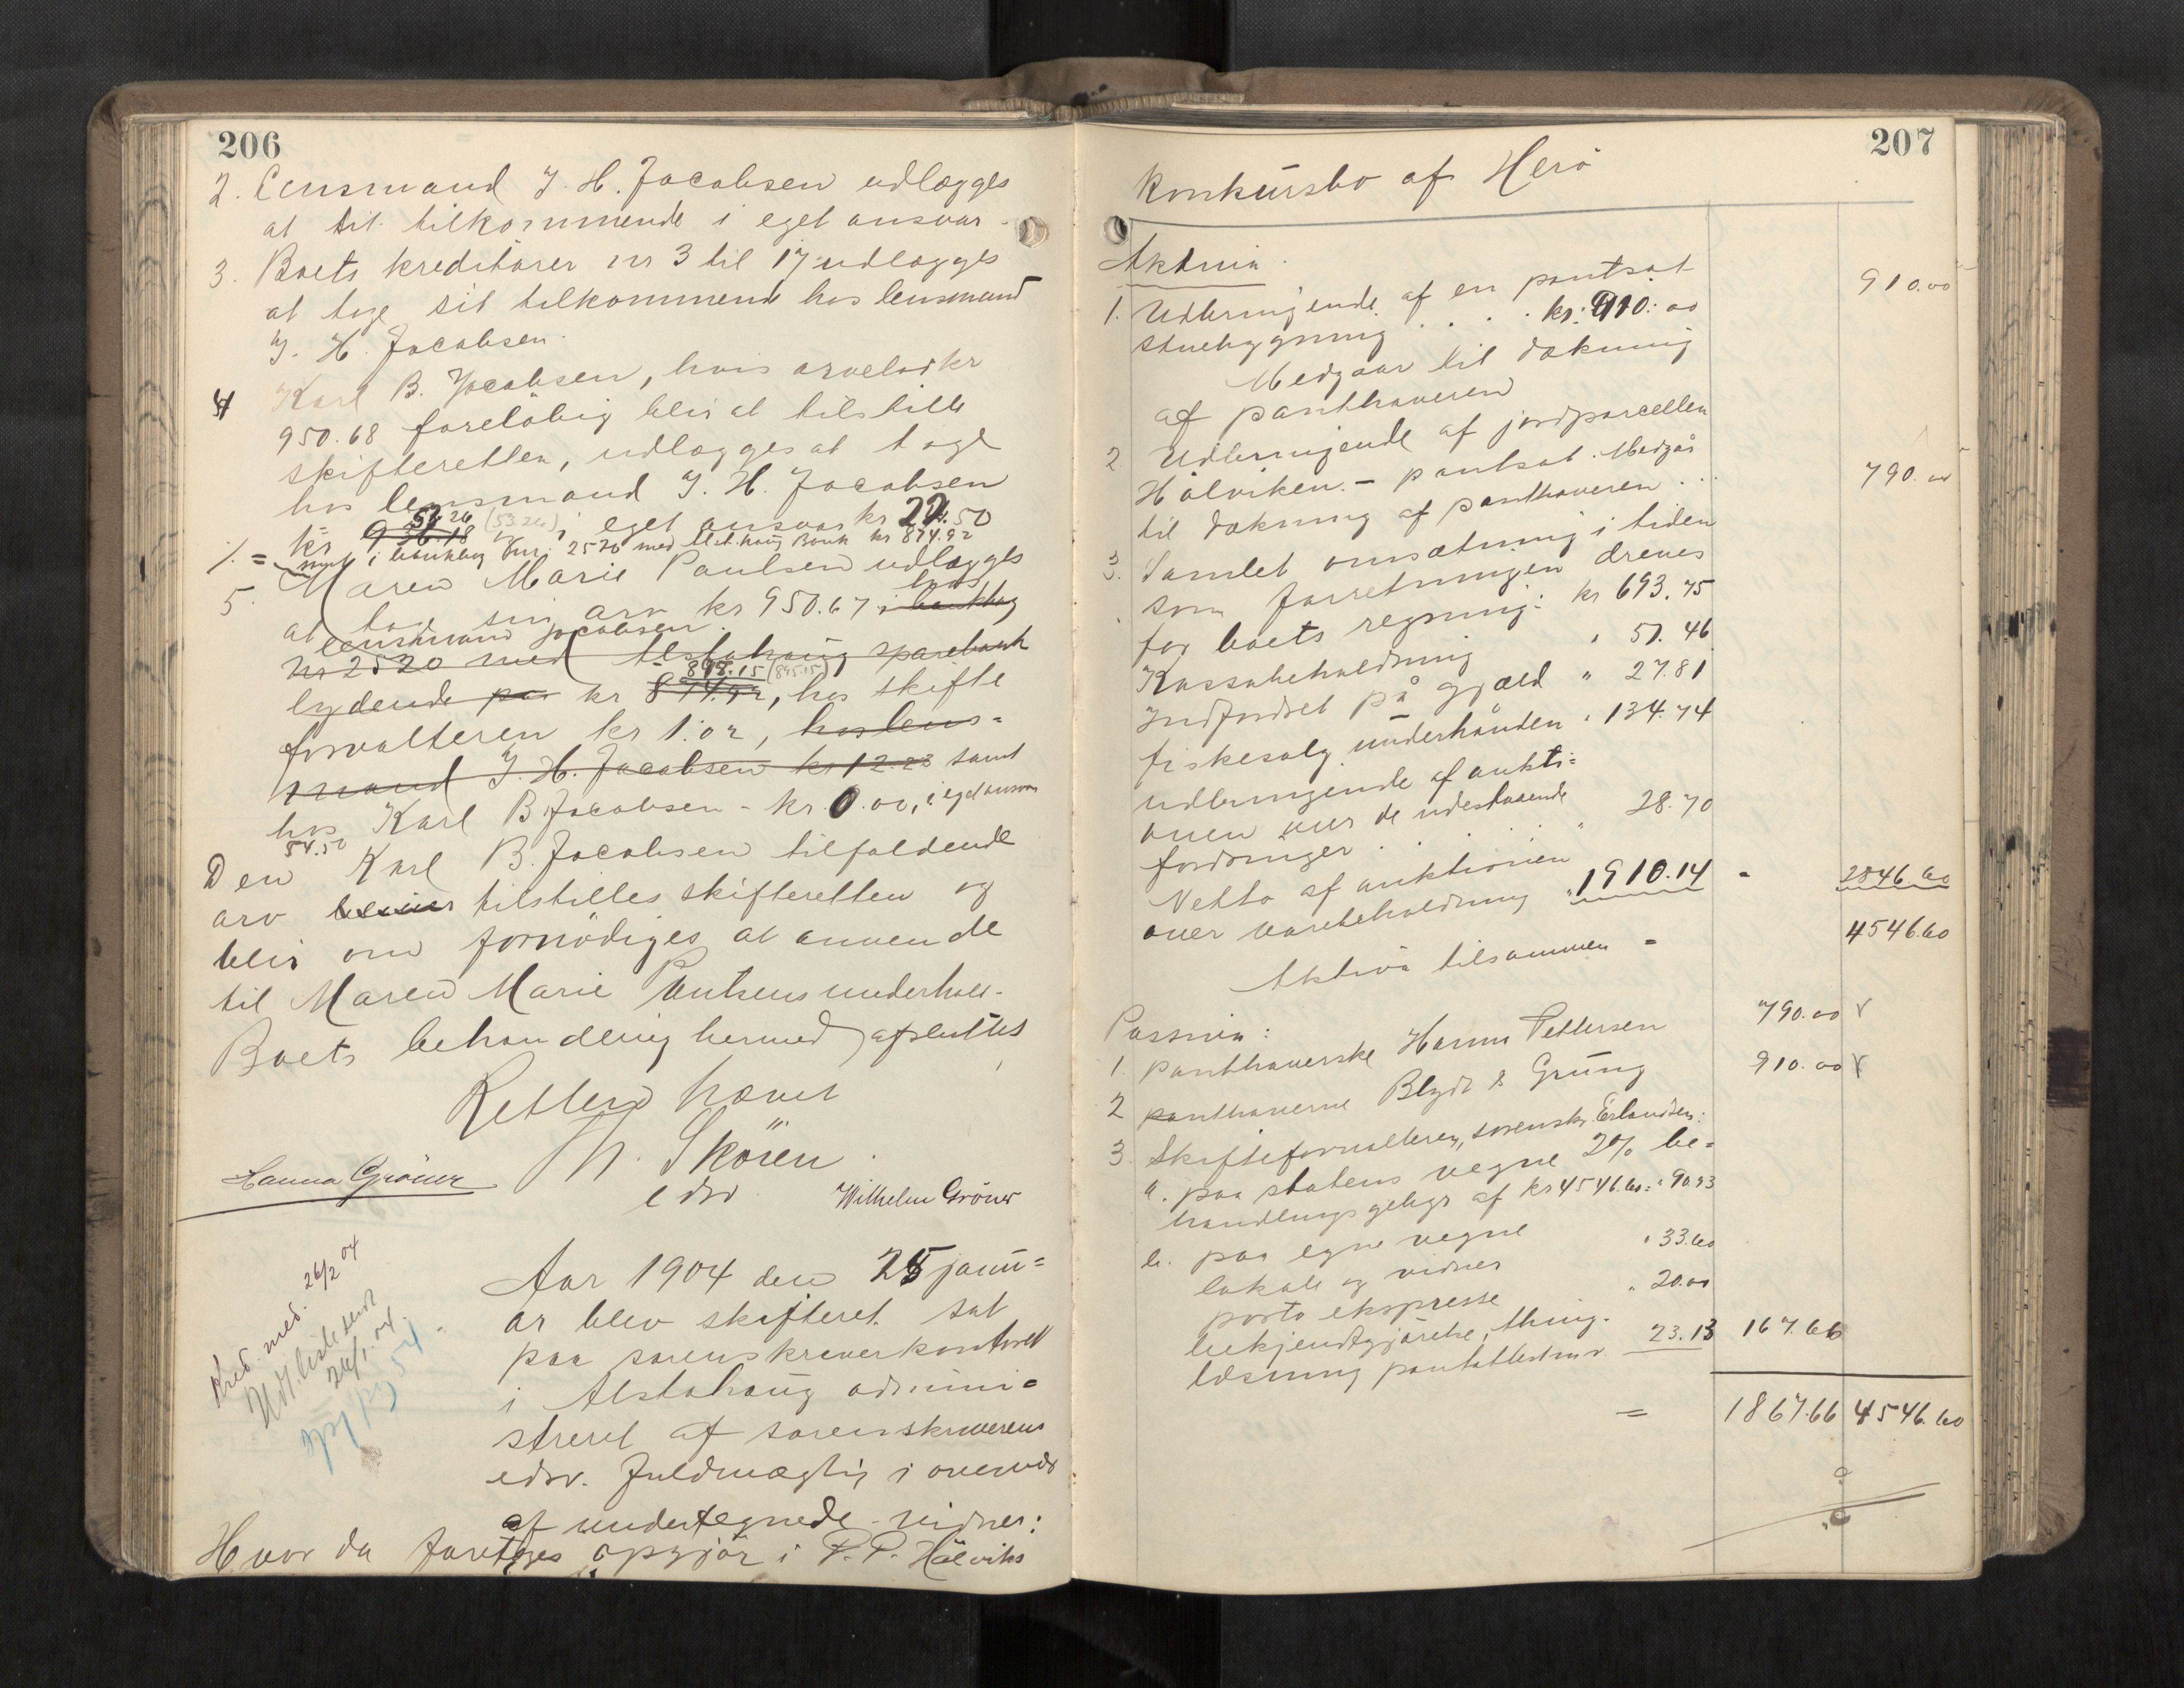 206
2. Lensmand J. H. Jacobsen udlægges
at ta tilkommende i eget ansvar.
3. Boets kreditorer nr 3 til 17 udlægges
at tage sit tilkommende hos lensmand
J. H. Jacobsen.
4 Karl B. Jacobsen, hvis arvelod kr
950.68 foreløbig blir at tilstille
skifteretten, udlægges at tage
hos lensmand J. H. Jacobsen
53.26 (53.26)
kr 936.18 og i eget ansvar kr 22.50
1. = samt i bankbog nr. 2520 med Alstahaug Bank kr 874.92
5. Maren Marie Paulsen udlægges
at tage sin arv kr 950.67 i bankbog hos
lensmand Jacobsen
No 2520 med Alstahaug sparebank
898.15 (895.15)
lydende paa kr 874.92, hos skifte
forvalteren kr 1.02, hos lens=
mand J. H. Jacobsen kr 12.23 samt
hos Karl B. Jacobsen - kr 0.00, i eget ansvar
54.50
Den Karl B. Jacobsen tilfaldende
arv tilstilles skifteretten og
blir om fornødiges at anvende
til Maren Marie Paulsens underhold.
Boets behandling hermed afsluttes
Retten hævet
M. Skören
edsv
Hanna Gröner
Wilhelm Gröner
Kred. med. 26/2 04
Udl. liste sendt
26/1. 04.
Aar 1904 den 25 janu=
ar blev skifteret sat
paa sorenskriverkontoret
i Alstahaug admini=
streret af sorenskriverens
edsv. fuldmægtig i overvær
af undertegnede vidner:
Hvor da foretoges opgjör i P. P. Hålviks
207
konkursbo af Herö
Aktiva.
1. Udbringende af en pantsat
stuebygning . . . . kr: 910:00 910.00
Medgaar til dækning
af panthaveren
2. Udbringende af jordparcellen
Hålviken. - pantsat. Medgår
til dækning af panthaveren . . 790.00
3. Samlet omsætning i tiden
som forretningen dreves
for boets regning: kr 693.75
Kassabeholdning " 51.46
Indfordret på gjæld " 27.81
fiskesalg underhånden " 134.74
udbringende af aukti=
onen over de udestaaende
fordringer . . " 28.70
Netto af auktionen
over varebeholdning " 1910.14 = 2846.60
Aktiva tilsammen = 4546.60
Passiva:
1. panthaverske Hanna Pettersen 790.00
2 panthaverne Blydt & Grung 910.00
3. Skifteforvalteren, sorenskr. Erlandsen:
a. paa statens vegne 2% be=
handlingsgebyr af kr 4546.60 = " 90.93
b. paa egne vegne
lokale og vidner " 33.60
porto ekspresse " 20.00
bekjendtgjörelse, thing-
læsning pantattest m.v. 23.13 167.66
= 1867.66 4546.60